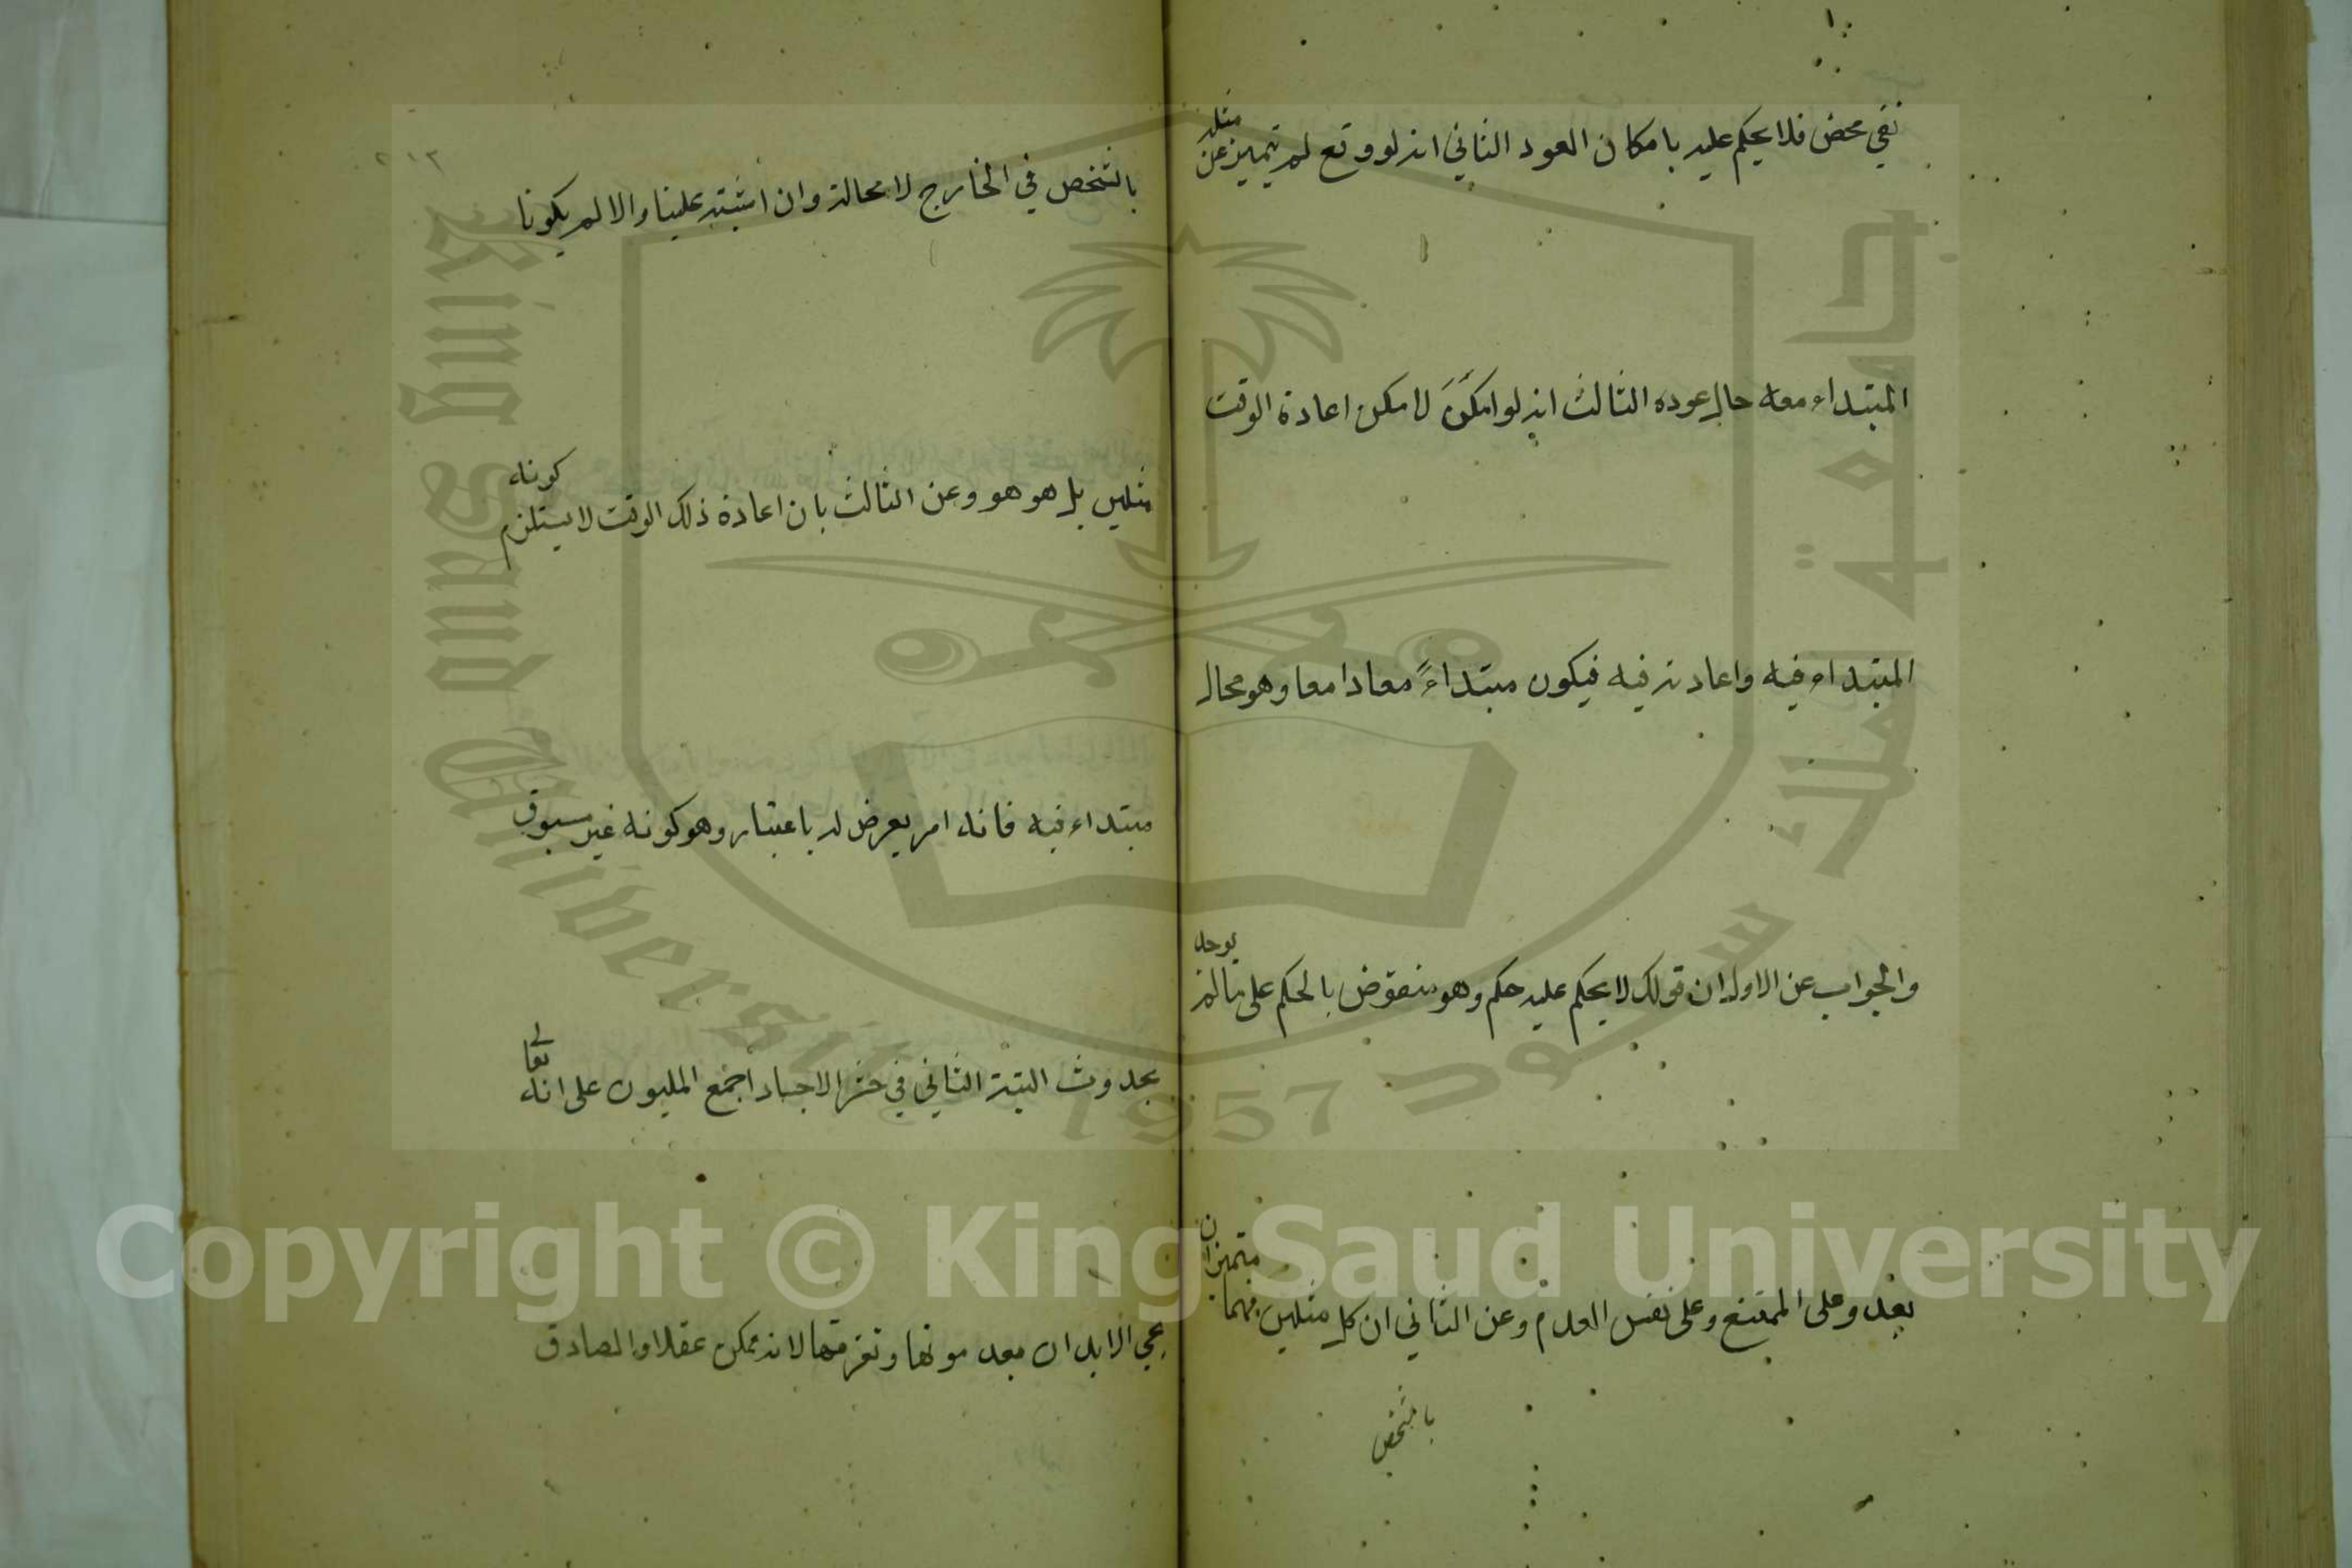 نفي محض فلا يحكم عليه بامكان العود الثاني انه لو وقع لم يتميز عن مثله
المبتداء معه حال عوده الثالث انه لو امكن لامكن اعادة الوقت
المبتداء فيه واعادته فيه فيكون مبتداءً معادا معا وهو محال
والجواب عن الاول ان قولك لا يحكم عليه حكم وهو منقوض بالحكم على ما لم يوجد
بعد وعلى الممتنع وعلى نفس العدم وعن الثاني ان كل مثلين فهما متميزان
بالشخص
٢١٣
بالشخص في الخارج لا محالة وان اشتبه علينا والا لم يكونا
مثلين بل هو هو وعن الثالث بان اعادة ذلك الوقت لا يستلزم كونه
مبتداء فيه فانه امر يعرض له باعتبار وهو كونه غير مسبوق
بحدوث البتة الثاني في حشر الاجساد اجمع المليون على انه تعالى
يحيي الابدان بعد موتها وتفرقها لانه ممكن عقلا والصادق
جامعة الملك سعود
King Saud University
1957
Copyright © King Saud University